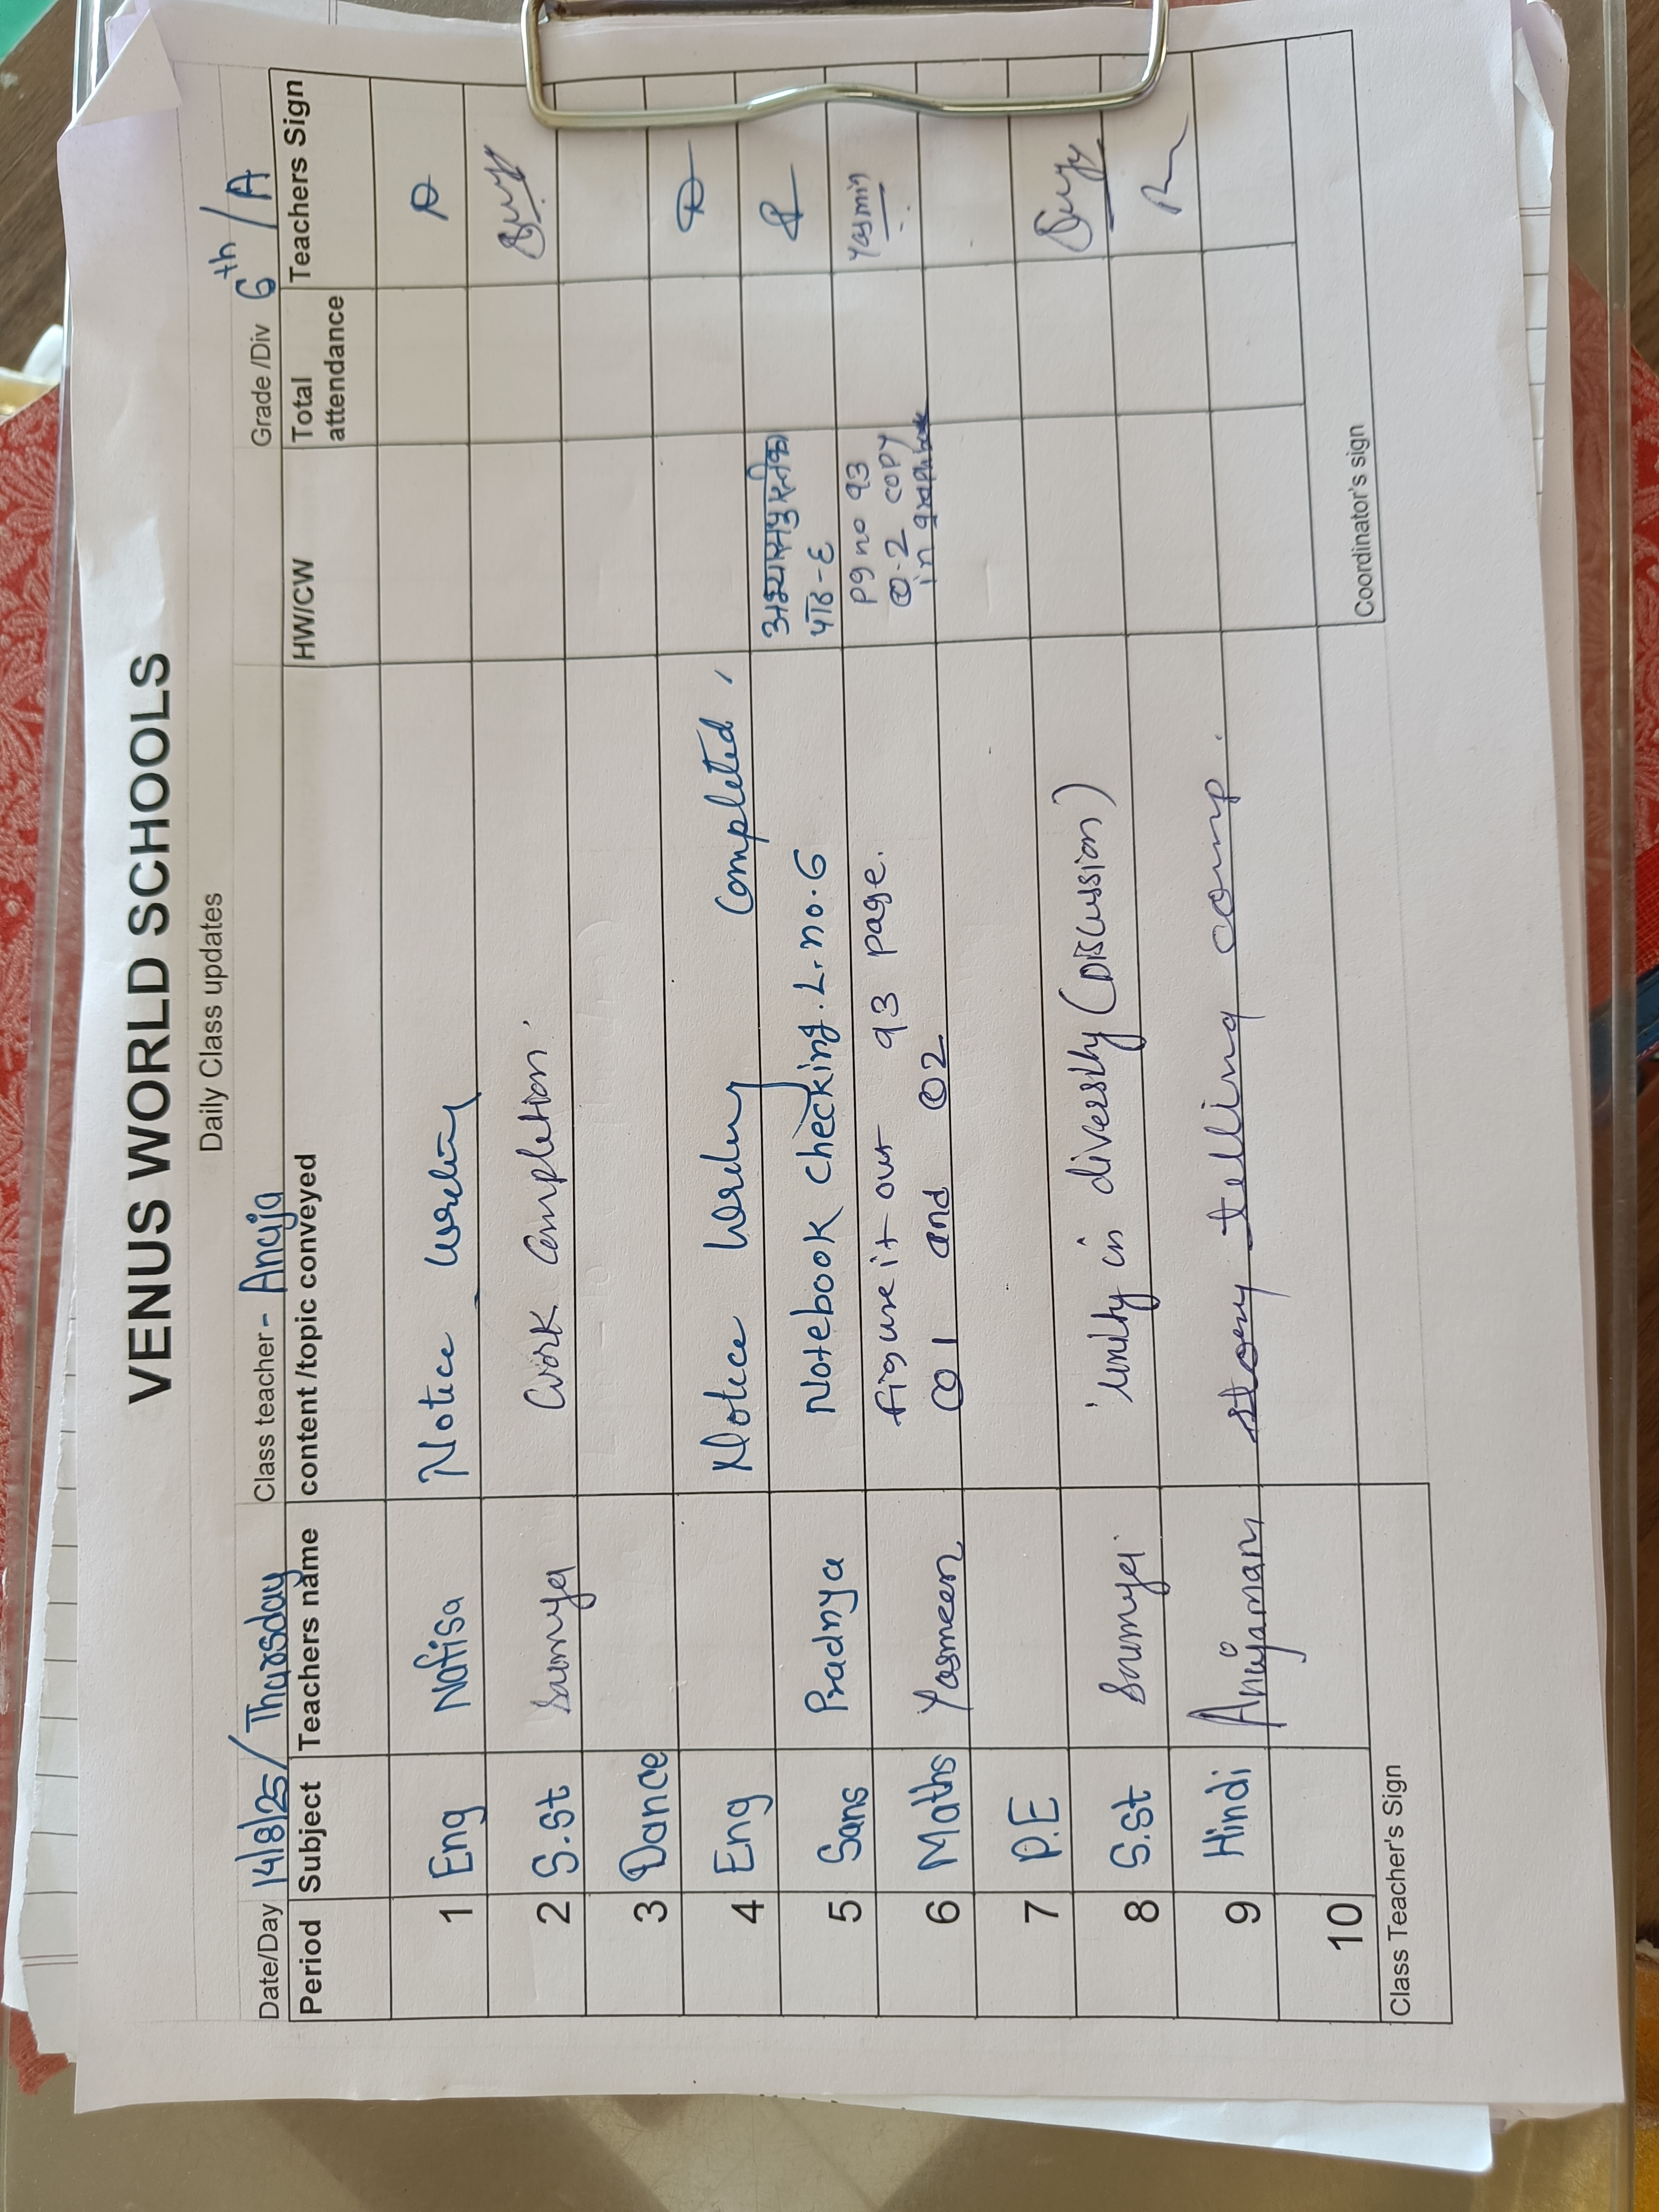 VENUS WORLD SCHOOLS
Daily Class updates
Date/Day 14/8/25/ Thursday Class teacher- Anuja Grade /Div 6th / A
Period Subject Teachers name content /topic conveyed HW/CW Total attendance Teachers Sign
1 Eng Nafisa Notice Writing
2 S.St Saumya Work Completion.
3 Dance
4 Eng Notice Writing Completed
5 Sans Pradnya Notebook checking. L. no. 6 अभ्यासपुस्तिका
पाठ-६
6 Maths Yasmeen figure it out 93 page. Pg no 93 Yasmin
Q 1 and Q2 Q.2 copy
in graphbook
7 P.E
8 S.St Saumya 'Unity in diversity (Discussion)
9 Hindi Anujamam story telling comp.
10
Class Teacher's Sign Coordinator's sign